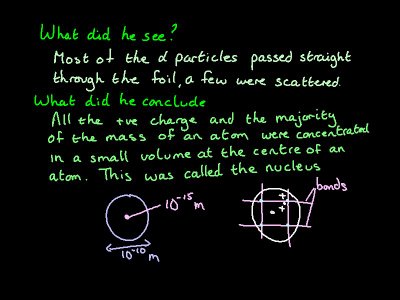 What did he see?
Most of the α particles passed straight
through the foil, a few were scattered.
What did he conclude
All the +ve charge and the majority
of the mass of an atom were concentrated
in a small volume at the centre of an
atom. This was called the nucleus
bonds
10⁻¹⁵ m
+
+
10⁻¹⁰ m